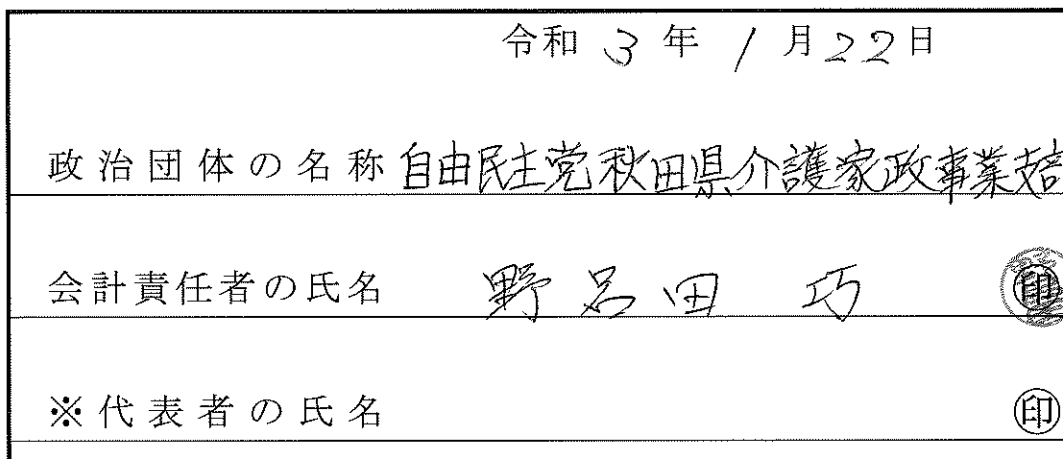 令和 3 年 1 月 22 日
政治団体の名称 自由民主党秋田県介護家政事業支部
会計責任者の氏名 野呂田 巧 印
※代表者の氏名 印